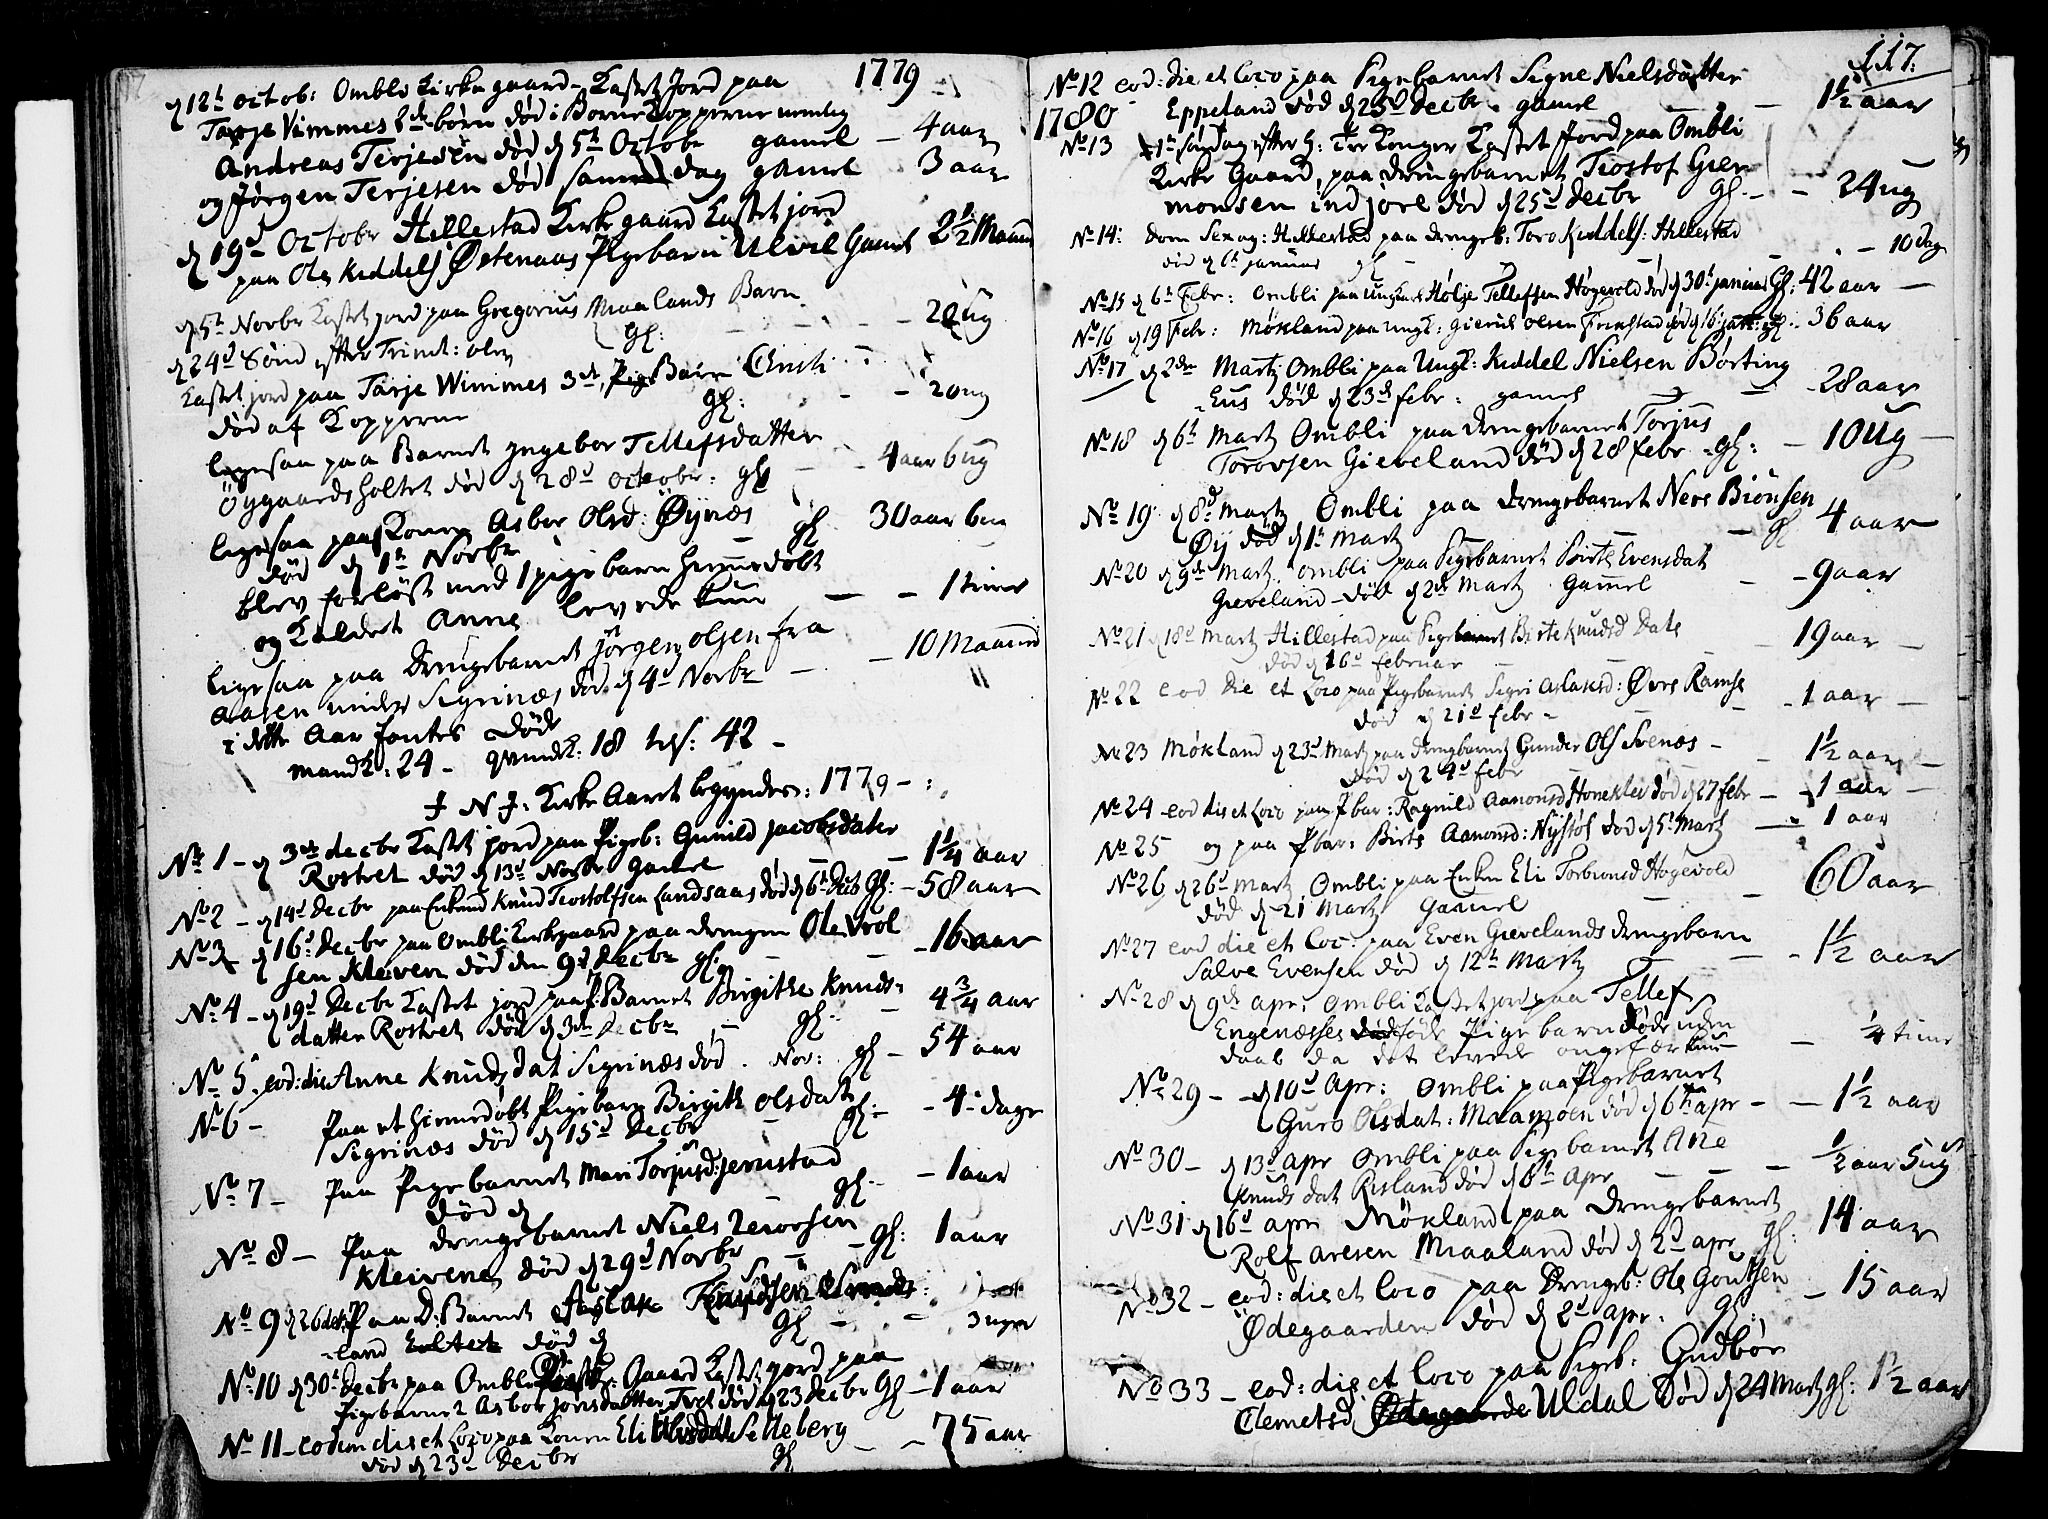 1779
d 12t octob: Ombli Kirke gaard - Kastet Jord paa
Tarje Vimmes 2de børn død i Børne Kopperne nemlig
Andreas Terjesen død d 5t Octobr gamel - 4 aar
og Jørgen Terjesen død samme dag gamel 3 aar
d 19d Octobr Hillestad Kirke gaard Kastet jord
paa Ole Kiddels Østenaas Pigebarn Ulvil Gamel 2 1/2 Maaned
d 5t Novbr Kastet jord paa Gregorius Maalands Barn
gl: - 20 ug
d 24d Sønd efter Trinit:
Kastet jord paa Tarje Wimmes 3de Pige Barn Christi
død af Kopperne gl: - 20 ug
ligesaa paa Barnet Ingebor Tellefsdatter
Øygaardsholtet død d 28d octobr: gl 4 aar 6 ug
ligesaa paa Konen Asbor Olsd: Øynæs
død d 1t Novbr gl 30 aar 6 m
blev forløst med 1 pige barn hiemmedøbt
og Kaldet Anne levede kun - - 1 time
ligesaa paa Drengebarnet Jørgen olsen fra
Aasen under Sigrinæs død d 4d Novbr - 10 Maaned
i dette Aar findes Døde
mandk: 24 - qvindk: 18 tils: 42 -
I N J: Kirke Aaret begyndes: 1779 -
No 1 - d 3de decbr Kastet jord paa Pigeb: Gunild Jacobsdater
Rostvet død d 13d Novbr Gamel - 1 1/4 aar
No 2 - d 14d Decbr paa Enkemd Knud Tiostolfsen Landsaas død d 6t Decb gl: - 58 aar
No 3 d 16d Decbr paa Ombli Kirkegaard paa drengen Ole Vrol
sen Kleiven død den 9d Decbr gl: - 16 aar
No 4 - d 19d Decbr Kastet jord paa P: Barnet Birgithe Knuds-
datter Rostvet død d 3de Decbr gl: - 4 3/4 aar
No 5. eod: die Anne Knudsdat Sigrinæs død . Nov: gl - 54 aar
No 6 - Paa et hiemedøbt Pigebarn Birgith olsdatr
Sigrinæs død d 15d Decbr gl: - 4 dage
No 7 - Paa Pigebarnet Mari Torjusd: jernstad
død d gl: - 1 aar
No 8 - Paa drengebarnet Niels Terovsen
Kleivene død d 29d Novbr - gl: 1 aar
No 9 d 26 de: Paa D: Barnet Aslak Knudsen
land død d gl - 3 uger
No 10 d 30d Decbr paa Ombli Kirke: Gaard Kastet jord paa
Pigebarnet Asbor jonsdatter Tvet død d 23 decbr gl - 1 aar
No 11 - eodem die et Loco paa Konen Eli Olsdat Selleberg
død d 23d Decbr gl - 75 aar
117.
No 12 eod: die et Loco paa Pigebarnet Signe Nielsdatter
Eppeland død d 23d decbr. gamel - 1 1/2 aar
1780
No 13 1te søndag efter H: Tre Konger Kastet Jord paa Ombli
Kirke Gaard, paa drengebarnet Tiostof Gier
monsen indjore død d 25d decbr gl - - 24 ug
No 14: dom Sexag: Hillestad paa drengeb: Toro Kiddels: Hillestad
død d 6t januar gl - - 10 dage
No 15 d 6t Febr: Ombli paa Ungkarl Holje Tellefsen Høgevold død d 30d januar gl: 42 aar -
No 16 d 19 Febr: Møkland paa ungk: Gierul olsen død d 16 gl: 36 aar
No 17 d 2den Marty Ombli paa Ungk: Kiddel Nielsen Børting
-Eus død d 23d febr: gamel - 28 aar
No 18 d 6t Marty Ombli paa drengebarnet Torjus
Torovsen Gieveland død d 28 febr gl: - 10 ug
No 19 d 8d Marty Ombli paa drengebarnet Neri Biønsen
Øy død d 1t Marty - gl 4 aar
No 20 d 9de Marty. ombli paa Pigebarnet Birte Evensdat
Gieveland - død d 2de Marty Gamel - 9 aar
No 21 d 18d Marty Hillestad paa Pigebarnet Birte Knudsd Dale
død d 16d februar - 19 aar
No 22 eod die et Loco paa Pigebarnet Sigri Aslaksd: Øvre Ramse
død d 21d febr - - 1 aar
No 23 Møkland d 23d Marty paa drengebarnet Gunder Ols Svenæs -
død d 24d febr - 1 1/2 aar
No 24 - eod die et Loco paa P bar: Ragnild Aanonsd Honeklev død d 27 febr - 1 aar
No 25 og paa P bar: Birte Aanonsd: Nystøl død d 5t Marty - 1 aar
No 26 d 26d Marty Ombli paa Enken Eli Torbiønsd Høgevold
død d 21 Marty Gamel - 60 aar
No 27 eod die et Loc: paa Even Gievelands drengebarn
Salve Evensen død d 12t Marty - 1 1/2 aar
No 28 d 9de apr: Ombli Kastet jord paa Tellef
Engenæsses føde Pige barn døde uden
daab da det levede ongefær kun - 1/4 time
No 29 - d 10d Apr: Ombli paa Pigebarnet
Guro Olsdat: Maamoen død d 6te apr - - 1 1/2 aar
No 30 - d 13d apr Ombli paa Pigebarnet Ane
Knudsdat Risland død d 6t apr - 1/2 aar 5 ug
No 31 d 16d apr Møkland paa drengebarnet
Rolf aresen Maaland død d 2d apr gl: 14 aar
No 32 - eod: die et Loco paa Drengeb: Ole Goutsen
Ødegaarden død d 2d apr. gl: - 15 aar
No 33 - eod: die et Loco paa Pigeb: Gudbør
Clemetsd Uldal død d 24 Marty gl: 1 1/2 aar